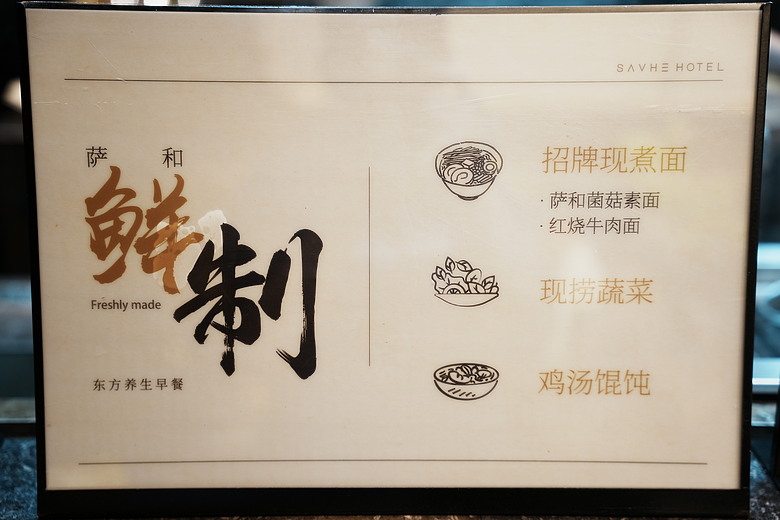 SAVHE HOTEL
萨和
鲜制
Freshly made
东方养生早餐
招牌现煮面
· 萨和菌菇素面
· 红烧牛肉面
现捞蔬菜
鸡汤馄饨